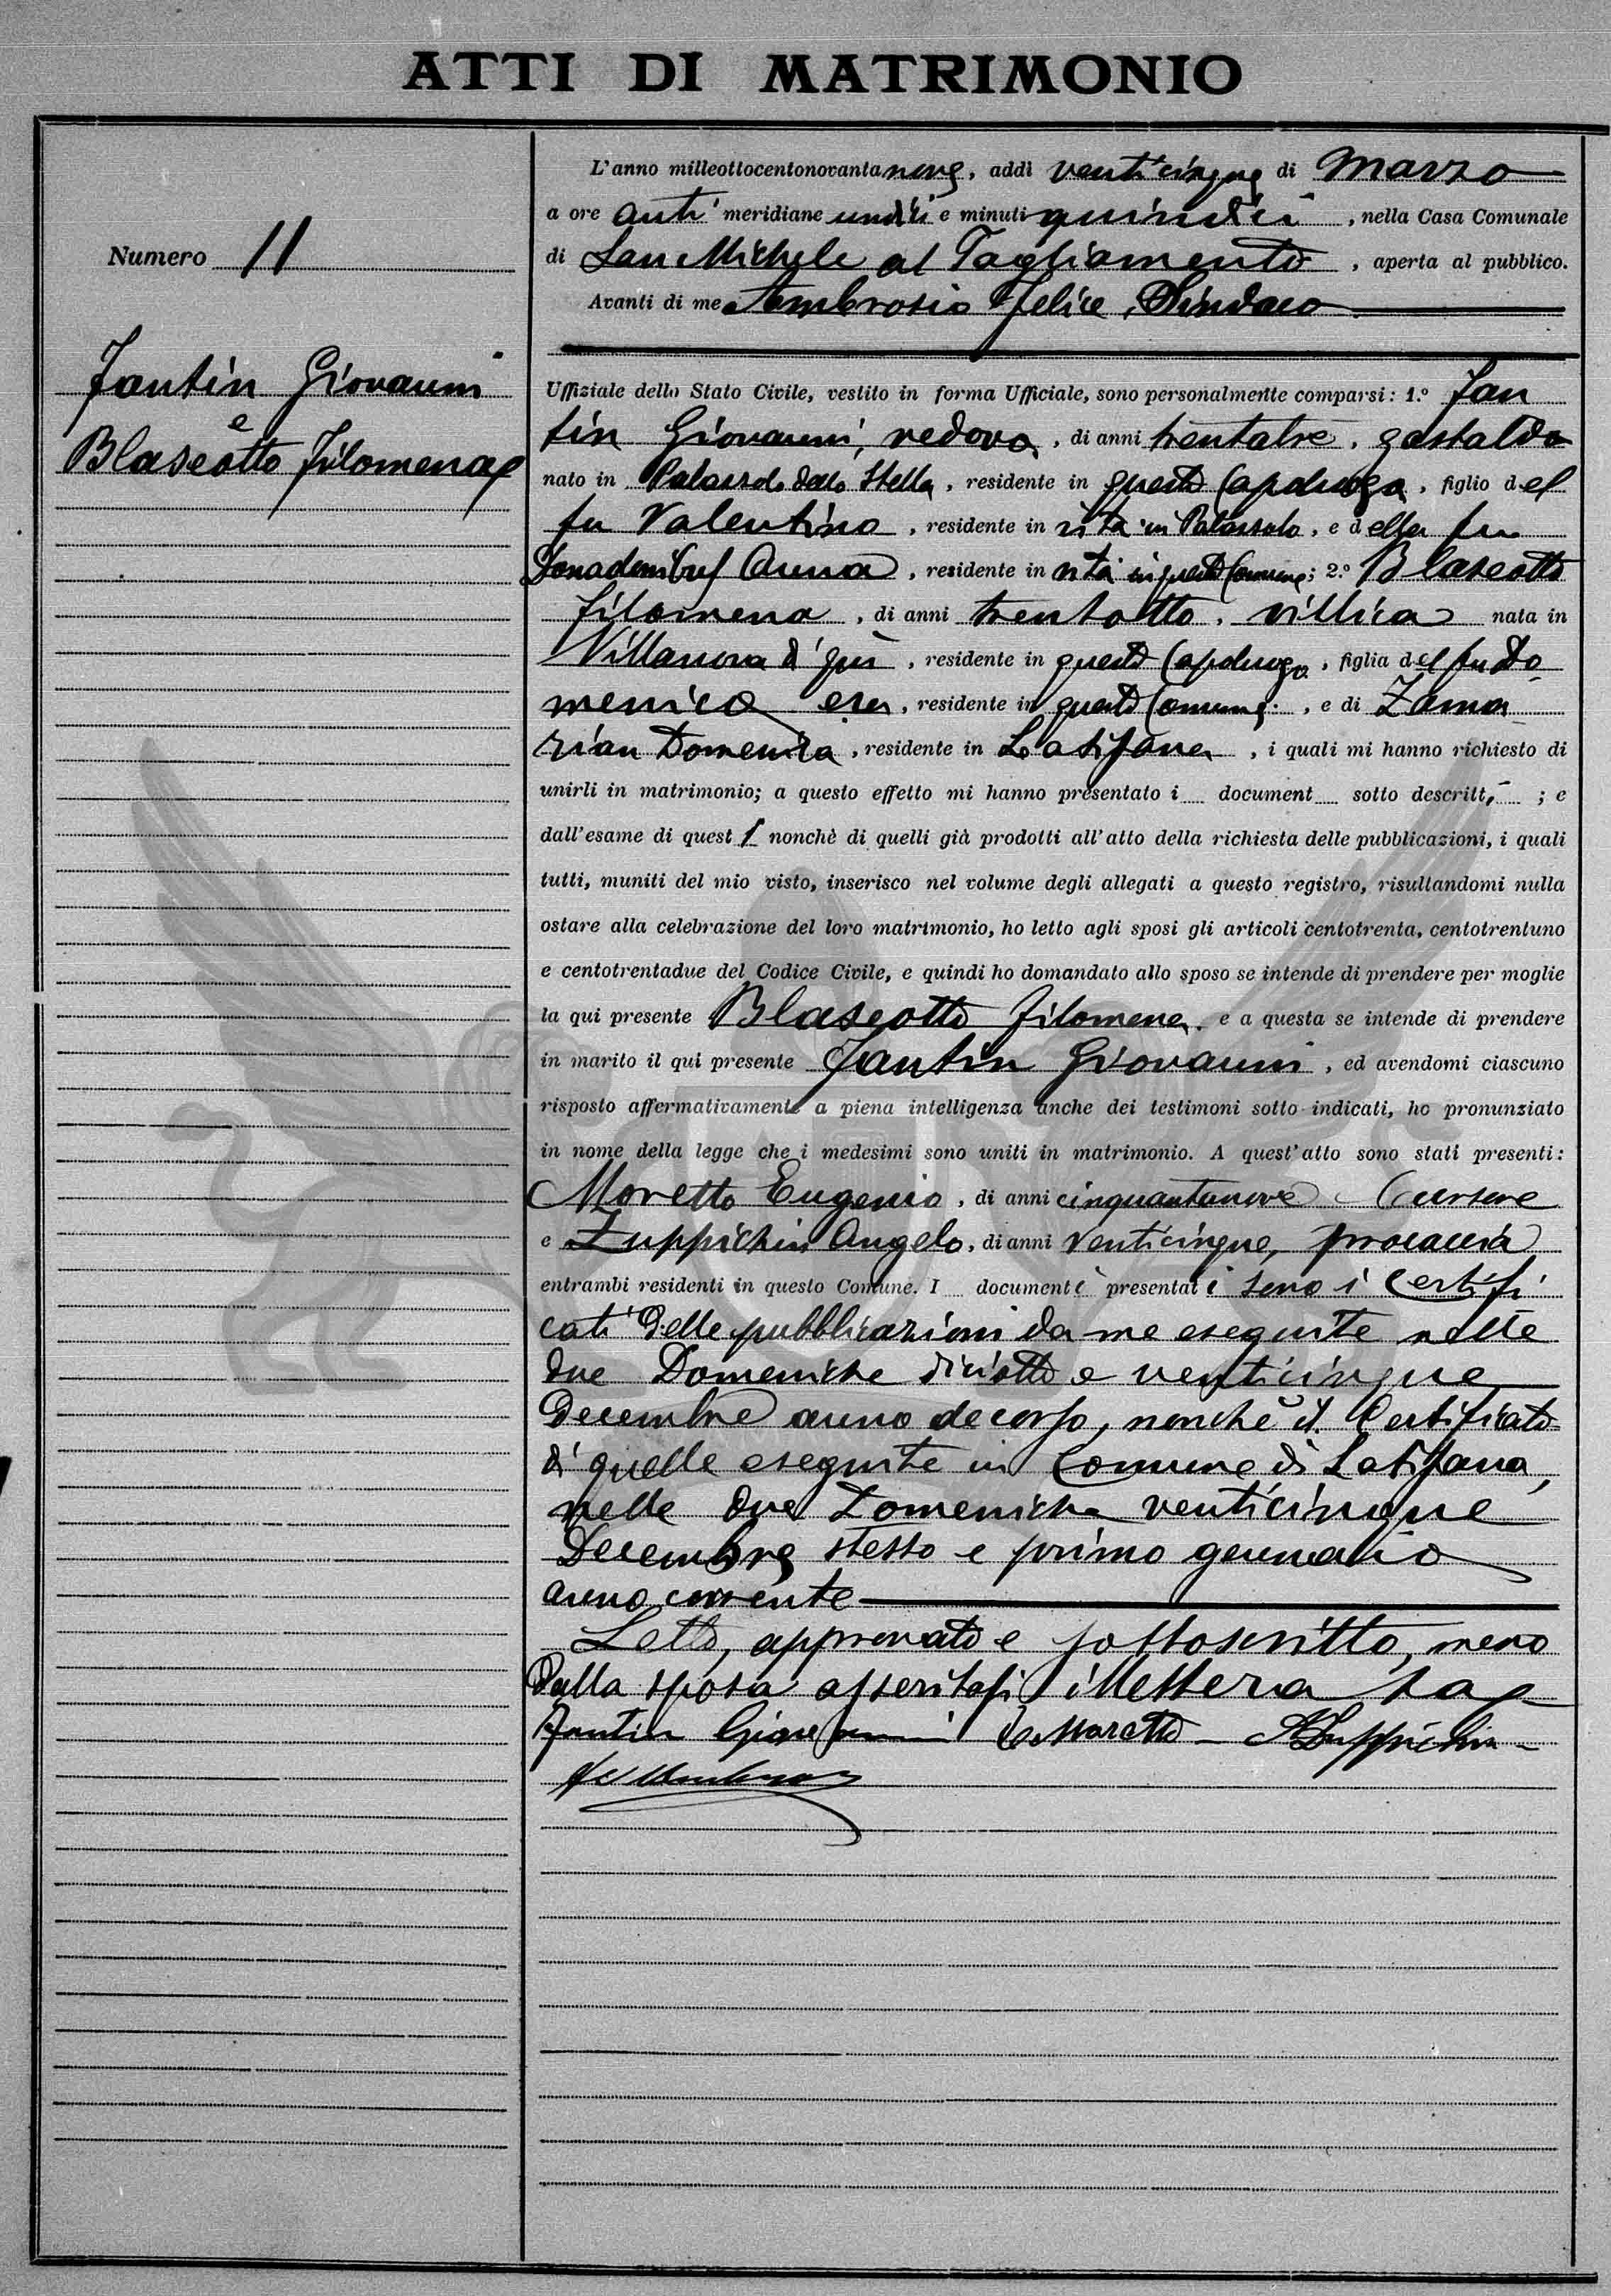 ATTI DI MATRIMONIO
Numero 11
Fantin Giovanni
e
Blaseotto Filomena
L'anno milleottocentonovantanove, addì venticinque di Marzo
a ore anti meridiane undici e minuti quindici, nella Casa Comunale
di San Michele al Tagliamento, aperta al pubblico.
Avanti di me Ambrosio Felice, Sindaco
Uffiziale dello Stato Civile, vestito in forma Ufficiale, sono personalmente comparsi: 1.° Fan
tin Giovanni, vedovo, di anni trentatre, gastaldo
nato in Palazzolo dello Stella, residente in questo Capoluogo, figlio del
fu Valentino, residente in vita in Palazzolo, e della fu
Anna, residente in vita in questo Comune; 2.° Blaseotto
Filomena, di anni trentotto, villica nata in
Villanova di qui, residente in questo Capoluogo, figlia del fu Do
menico era, residente in questo Comune, e di Zama
rian Domenica, residente in Latisana, i quali mi hanno richiesto di
unirli in matrimonio; a questo effetto mi hanno presentato i document sotto descritt; e
dall'esame di questi nonchè di quelli già prodotti all'atto della richiesta delle pubblicazioni, i quali
tutti, muniti del mio visto, inserisco nel volume degli allegati a questo registro, risultandomi nulla
ostare alla celebrazione del loro matrimonio, ho letto agli sposi gli articoli centotrenta, centotrentuno
e centotrentadue del Codice Civile, e quindi ho domandato allo sposo se intende di prendere per moglie
la qui presente Blaseotto Filomena, e a questa se intende di prendere
in marito il qui presente Fantin Giovanni, ed avendomi ciascuno
risposto affermativamente a piena intelligenza anche dei testimoni sotto indicati, ho pronunziato
in nome della legge che i medesimi sono uniti in matrimonio. A quest'atto sono stati presenti:
Moretto Eugenio, di anni cinquantanove Cursore
e Zuppichin Angelo, di anni venticinque, procaccia
entrambi residenti in questo Comune. I documenti presentati sono i certifi
cati delle pubblicazioni da me eseguite nelle
due Domeniche diciotto e venticinque
Decembre anno decorso, nonchè il Certificato
di quelle eseguite in Comune di Latisana,
nelle due Domeniche venticinque
Decembre stesso e primo gennaio
anno corrente
Letto, approvato e sottoscritto, meno
dalla sposa asseritasi illetterata
Fantin Giovanni E Moretto - A Zuppichin -